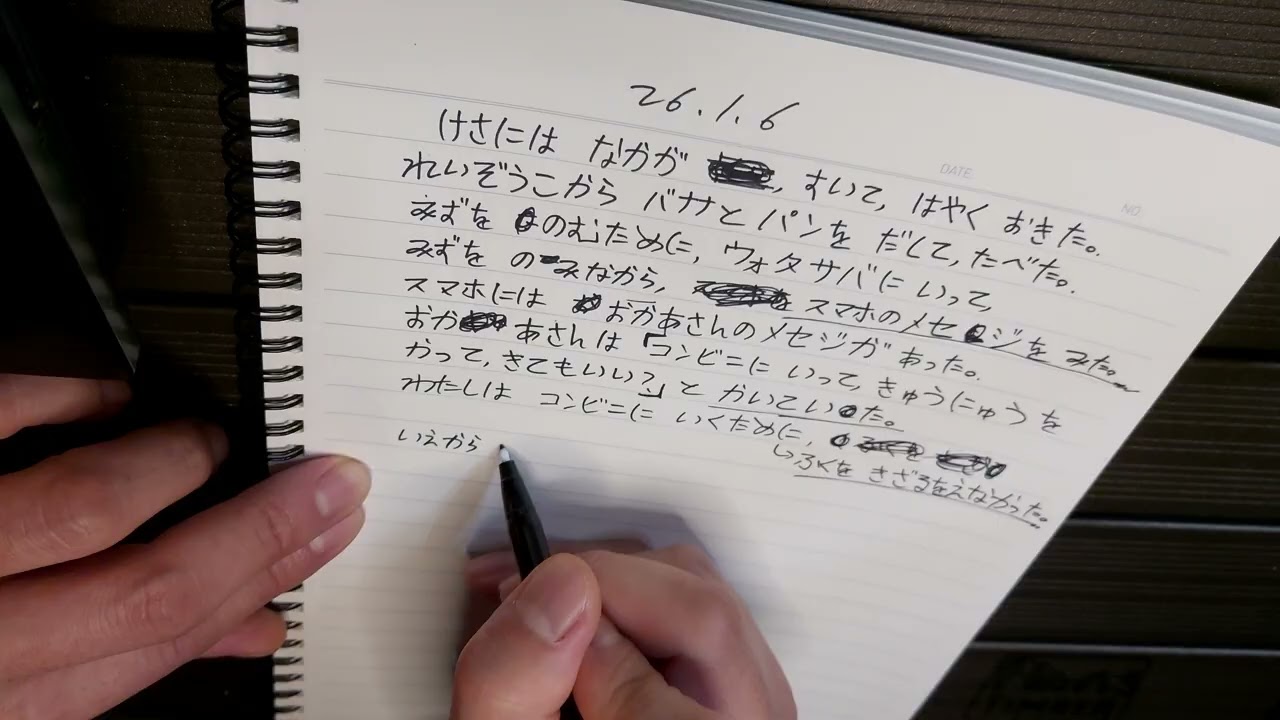 26.1.6
DATE
NO.
けさには なかが , すいて, はやく おきた。
れいぞうこから バナナと パンを だして, たべた。
みずを のむために, ウォタサバに いって,
みずを のみながら, スマホのメセジを みた。
スマホには おかあさんのメセジが あった。
おか あさんは「コンビニに いって, きゅうにゅうを
かって, きてもいい?」と かいてい た。
わたしは コンビニに いくために,
しふくを きざるをえなかった。
いえから